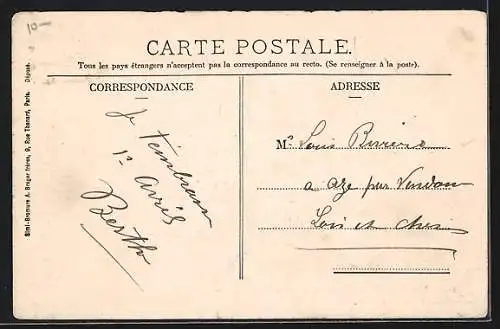 10-
CARTE POSTALE.
Tous les pays étrangers n'acceptent pas la correspondance au recto. (Se renseigner à la poste).
CORRESPONDANCE
Je
1er Avril
Berth
ADRESSE
Mr Louis
a Azé par Vendom
Loir et Cher
Simi-Bromure A. Breger frères, 9, Rue Thénard, Paris. Déposé.